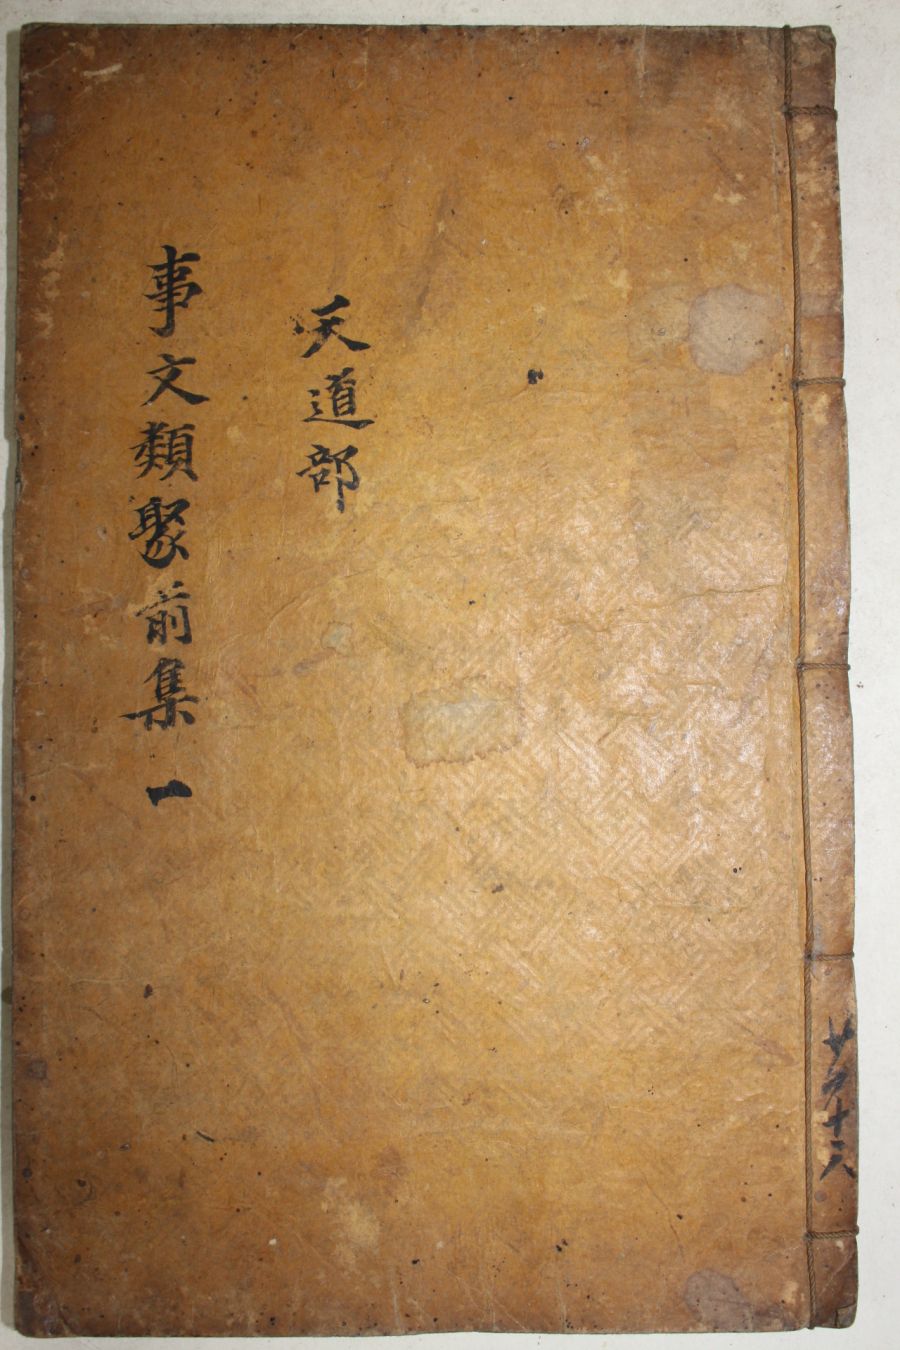 十八
天道部
事文類聚前集 一